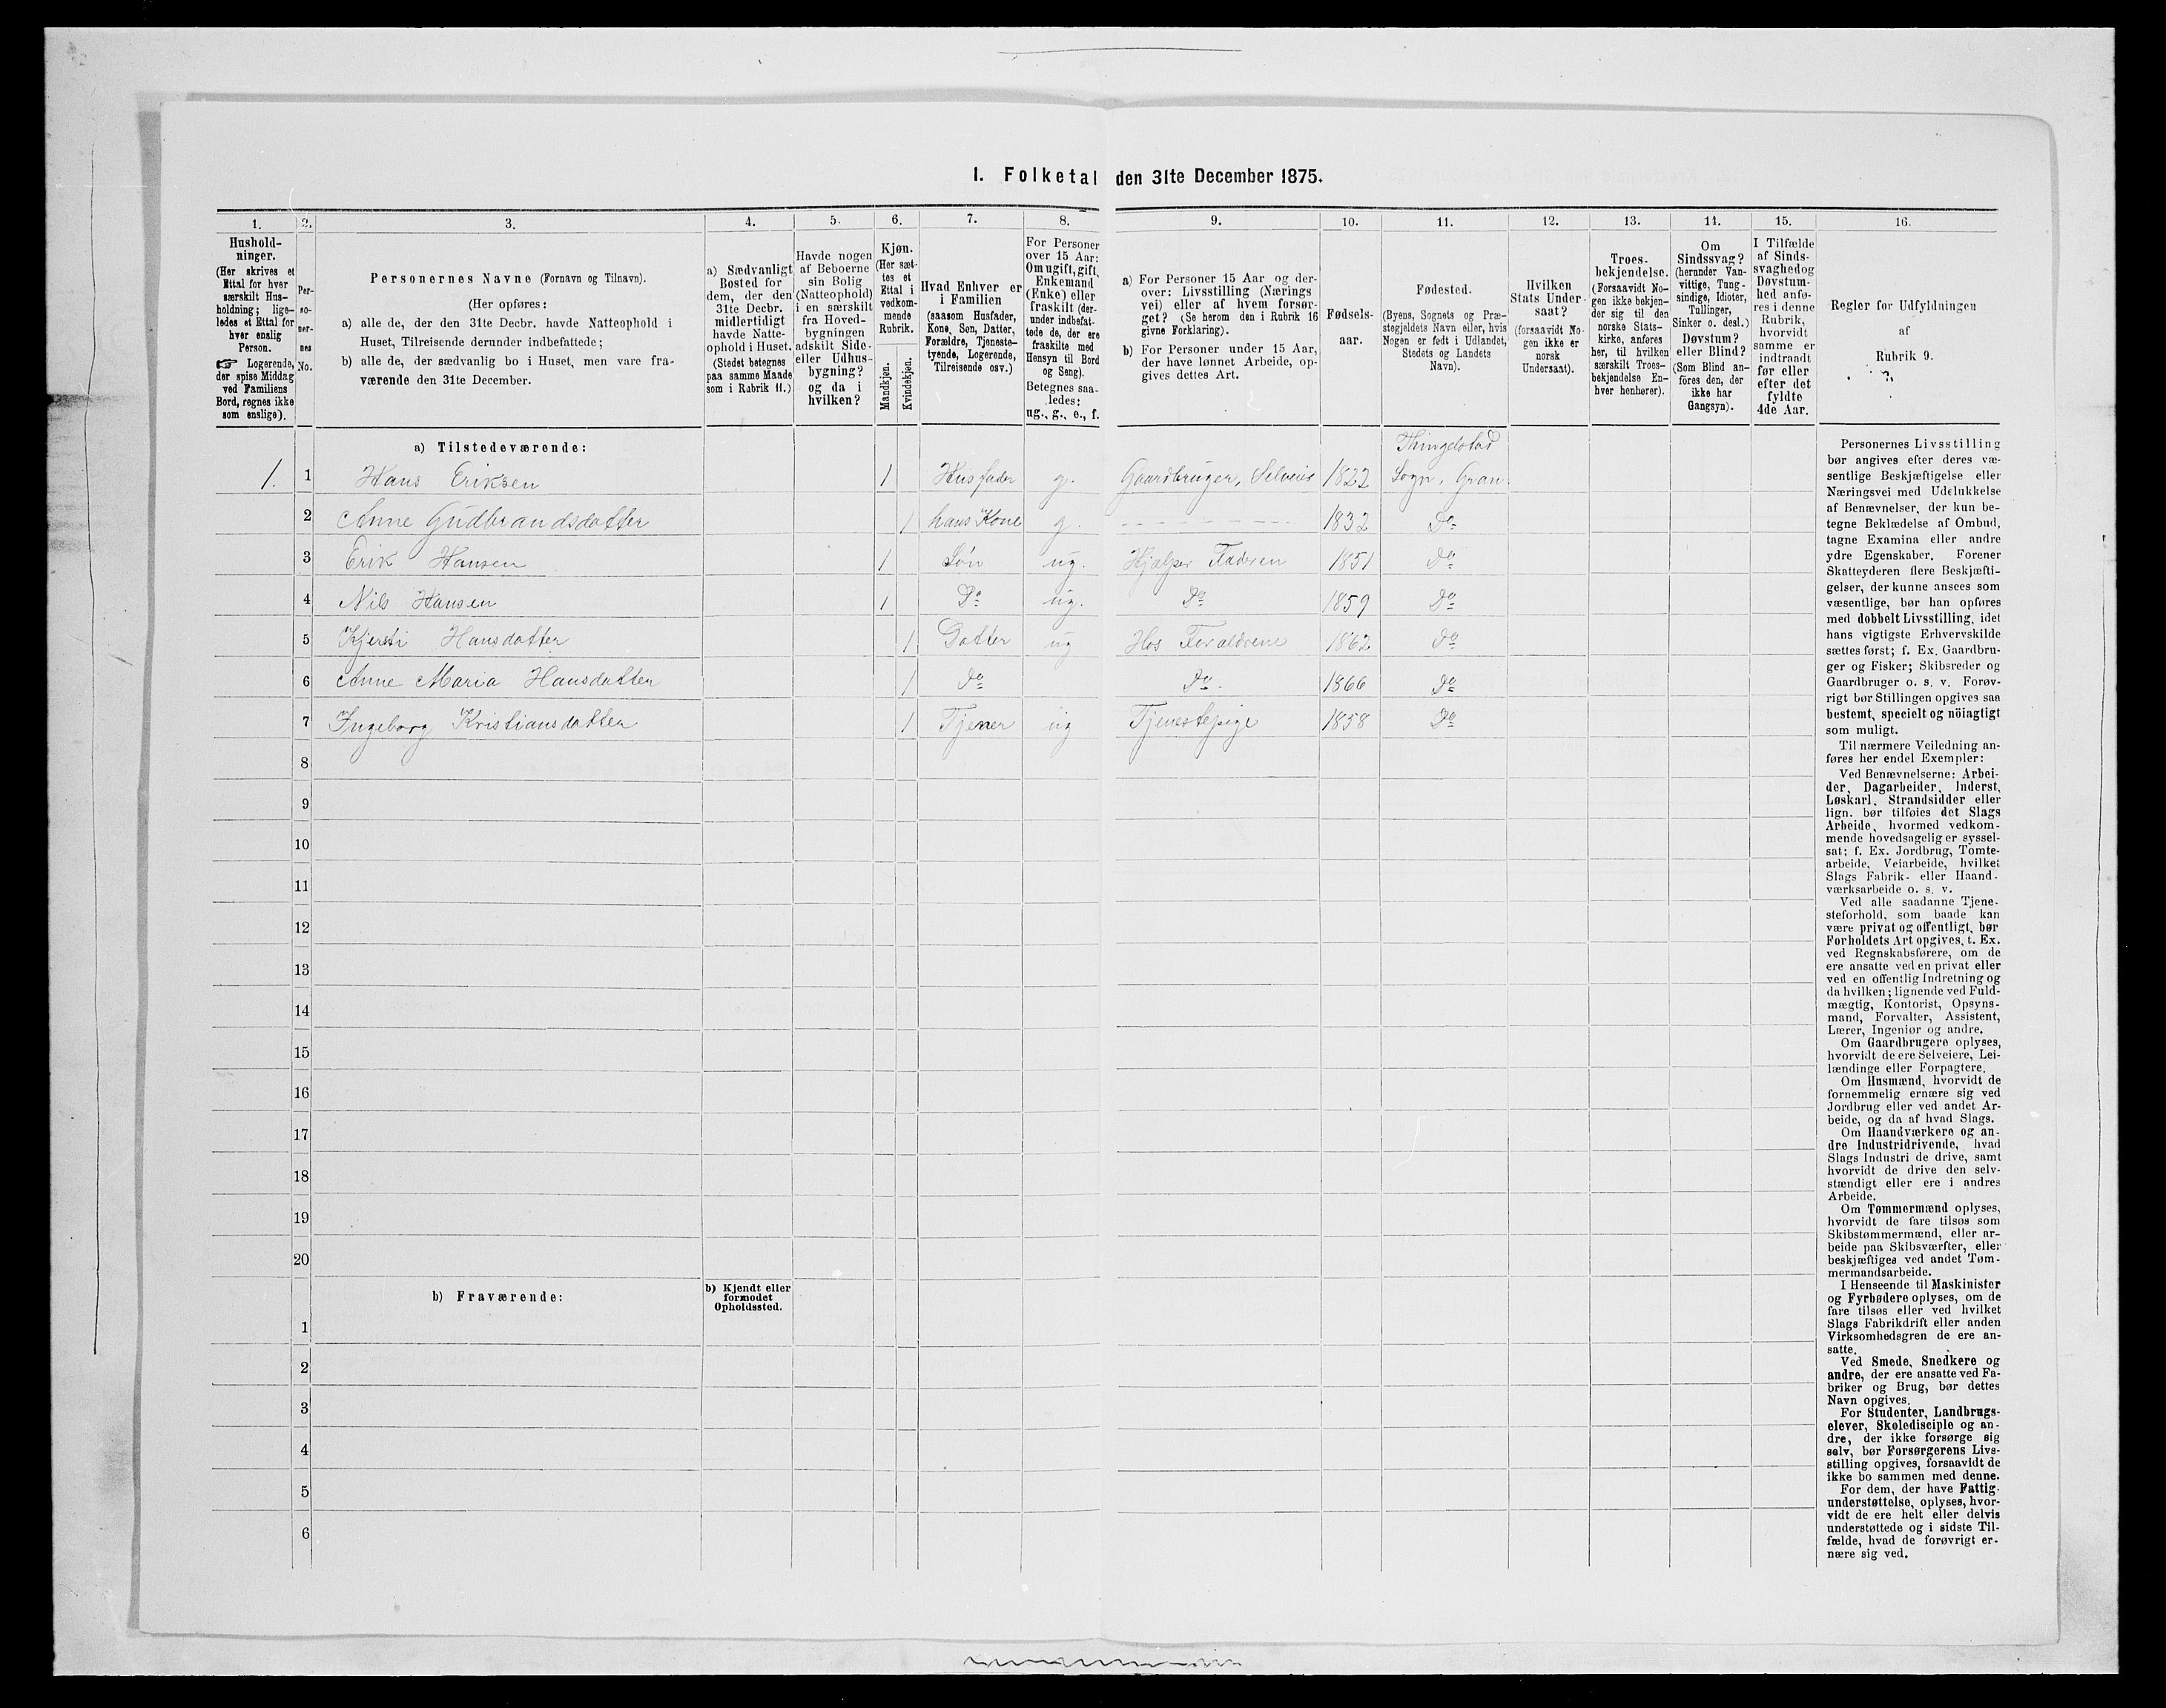 I. Folketal den 31te December 1875.
1.
2.
3.
4.
5.
6.
7.
8.
9.
10.
11.
12.
13.
14.
15.
16.
Hushold-
ninger.
(Her skrives et
Ettal for hver
særskilt Hus-
holdning; lige-
ledes et Ettal for
hver enslig
Person.
☞ Logerende,
der spise Middag
ved Familiens
Bord, regnes ikke
som enslige).
Per-
so-
ner-
nes
No.
Personernes Navne (Fornavn og Tilnavn).
(Her opføres:
a) alle de, der den 31te Decbr. havde Natteophold i
Huset, Tilreisende derunder indbefattede;
b) alle de, der sædvanlig bo i Huset, men vare fra-
værende den 31te December.
a) Sædvanligt
Bosted for
dem, der den
31te Decbr.
midlertidigt
havde Natte-
ophold i Huset.
(Stedet betegnes
paa samme Maade
som i Rubrik 11.)
Havde nogen
af Beboerne
sin Bolig
(Natteophold)
i en særskilt
fra Hoved-
bygningen
adskilt Side-
eller Udhus-
bygning?
og da i
hvilken?
Kjøn.
(Her sæt-
tes et
Ettal i
vedkom-
mende
Rubrik.
Mandkjøn.
Kvindekjøn.
Hvad Enhver er
i Familien
(saasom Husfader,
Kone, Søn, Datter,
Forældre, Tjeneste-
tyende, Logerende,
Tilreisende osv.)
For Personer
over 15 Aar:
Om ugift, gift,
Enkemand
(Enke) eller
fraskilt (der-
under indbefat-
tede de, der ere
fraskilte med
Hensyn til Bord
og Seng).
Betegnes saa-
ledes:
ug., g., e., f.
a) For Personer 15 Aar og der-
over: Livsstilling (Nærings
vei) eller af hvem forsør-
get? (Se herom den i Rubrik 16
givne Forklaring).
b) For Personer under 15 Aar,
der have lønnet Arbeide, op-
gives dettes Art.
Fødsels-
aar.
Fødested.
(Byens, Sognets og Præ-
stegjeldets Navn eller, hvis
Nogen er født i Udlandet,
Stedets og Landets
Navn).
Hvilken
Stats Under-
saat?
(forsaavidt No-
gen ikke er
norsk
Undersaat).
Troes-
bekjendelse.
(Forsaavidt No-
gen ikke bekjen-
der sig til den
norske Stats-
kirke, anføres
her, til hvilken
særskilt Troes-
bekjendelse En-
hver henhører).
Om
Sindssvag?
(herunder Van-
vittige, Tung-
sindige, Idioter,
Tullinger,
Sinker o. desl.)
Døvstum?
eller Blind?
(Som Blind an-
føres den, der
ikke har
Gangsyn).
I Tilfælde
af Sinds-
svaghed og
Døvstum-
hed anfø-
res i denne
Rubrik,
hvorvidt
samme er
indtraadt
før eller
efter det
fyldte
4de Aar.
Regler for Udfyldningen
af
Rubrik 9.
a) Tilstedeværende:
Thingelstad
1. 1 Hans Eriksen 1 Husfader g. Gaardbruger, Selveier 1822 Sogn, Gran
2 Anne Gudbrandsdatter 1 hans Kone g. - - - - - - - 1832 Do
3 Erik Hansen 1 Søn ug. Hjælper Faderen 1851 Do
4 Nils Hansen 1 Do ug. Do 1859 Do
5 Kjersti Hansdatter 1 Datter ug Hos Forældrene 1862 Do
6 Anne Maria Hansdatter 1 Do Do. 1866 Do
7 Ingeborg Kristiansdatter 1 Tjener ug Tjenestepige 1858 Do
8
9
10
11
12
13
14
15
16
17
18
19
20
b) Fraværende:
b) Kjendt eller
formodet
Opholdssted.
1
2
3
4
5
6
Personernes Livsstilling
bør angives efter deres væ-
sentlige Beskjæftigelse eller
Næringsvei med Udelukkelse
af Benævnelser, der kun be-
tegne Beklædelse af Ombud,
tagne Examina eller andre
ydre Egenskaber. Forener
Skatteyderen flere Beskjæfti-
gelser, der kunne ansees som
væsentlige, bør han opføres
med dobbelt Livsstilling, idet
hans vigtigste Erhvervskilde
sættes først; f. Ex. Gaardbru-
ger og Fisker; Skibsreder og
Gaardbruger o. s. v. Forøv-
rigt bør Stillingen opgives saa
bestemt, specielt og nöiagtigt
som muligt.
Til nærmere Veiledning an-
føres her endel Exempler:
Ved Benævnelserne: Arbei-
der, Dagarbeider, Inderst,
Løskarl, Strandsidder eller
lign. bør tilføies det Slags
Arbeide, hvormed vedkom-
mende hovedsagelig er syssel-
sat; f. Ex. Jordbrug, Tomte-
arbeide, Veiarbeide, hvilket
Slags Fabrik- eller Haand-
værksarbeide o. s. v.
Ved alle saadanne Tjene-
steforhold, som baade kan
være privat og offentligt, bør
Forholdets Art opgives, t. Ex.
ved Regnskabsførere, om de
ere ansatte ved en privat eller
ved en offentlig Indretning og
da hvilken; lignende ved Fuld-
mægtig, Kontorist, Opsyns-
mand, Forvalter, Assistent,
Lærer, Ingeniør og andre.
Om Gaardbrugere oplyses,
hvorvidt de ere Selveiere, Lei-
lændinge eller Forpagtere.
Om Husmænd, hvorvidt de
fornemmelig ernære sig ved
Jordbrug eller ved andet Ar-
beide, og da af hvad Slags.
Om Haandværkere og an-
dre Industridrivende, hvad
Slags Industri de drive, samt
hvorvidt de drive den selv-
stændigt eller ere i andres
Arbeide.
Om Tømmermænd oplyses,
hvorvidt de fare tilsøs som
Skibstømmermænd, eller ar-
beide paa Skibsværfter, eller
beskjæftiges ved andet Tøm-
mermandsarbeide.
I Henseende til Maskinister
og Fyrbødere oplyses, om de
fare tilsøs eller ved hvilket
Slags Fabrikdrift eller anden
Virksomhedsgren de ere an-
satte.
Ved Smede, Snedkere og
andre, der ere ansatte ved Fa-
briker og Brug, bør dettes
Navn opgives.
For Studenter, Landbrugs-
elever, Skoledisciple og an-
dre, der ikke forsørge sig
selv, bør Forsørgerens Livs-
stilling opgives, forsaavidt de
ikke bo sammen med denne.
For dem, der have Fattig-
understøttelse, oplyses, hvor-
vidt de ere helt eller delvis
understøttede og i sidste Til-
fælde, hvad de forøvrigt er-
nære sig ved.